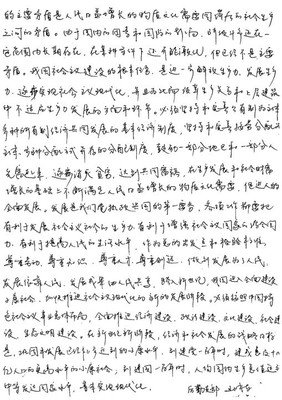 的主要矛盾是人民日益增长的物质文化需要同落后的社会生产
之间的矛盾。由于国内的因素和国际的影响，阶级斗争还在一
定范围内长期存在，在某种条件下还可能激化，但已经不是主要
矛盾。我国社会主义建设的根本任务，是进一步解放生产力，发展生产
力，逐步实现社会主义现代化，并且为此而改革生产关系和上层建筑
中不适应生产力发展的方面和环节。必须坚持和完善公有制为主体、
多种所有制经济共同发展的基本经济制度，坚持和完善按劳分配为
主体、多种分配方式并存的分配制度，鼓励一部分地区和一部分人
先富起来，逐步消灭贫穷，达到共同富裕，在生产发展和社会财富
增长的基础上不断满足人民日益增长的物质文化需要，促进人的
全面发展。发展是我们党执政兴国的第一要务。各项工作都要把
有利于发展社会主义社会的生产力，有利于增强社会主义国家的综合国
力，有利于提高人民的生活水平，作为总的出发点和检验标准，
尊重劳动、尊重知识、尊重人才、尊重创造，做到发展为了人民、
发展依靠人民、发展成果由人民共享。跨入新世纪，我国进入全面建设
小康社会、加快推进社会主义现代化的新的发展阶段。必须按照中国特
色社会主义事业总体布局，全面推进经济建设、政治建设、文化建设、社会建
设、生态文明建设。在新世纪新阶段，经济和社会发展的战略目标
是，巩固和发展已经初步达到的小康水平，到建党一百年时，建成惠及十几
亿人口的更高水平的小康社会；到建国一百年时，人均国内生产总值达到
中等发达国家水平，基本实现现代化。